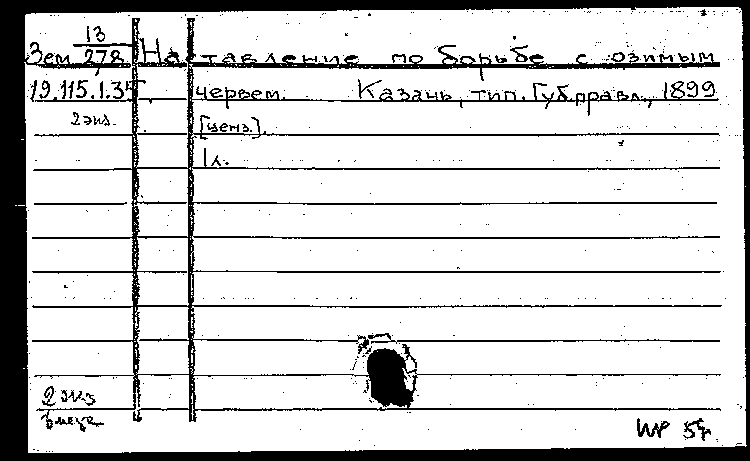 Зем 13/278 Наставление по борьбе с озимым
19.115.1.35 червем. Казань, тип. Губ.правл., 1899
2 экз. [ценз.].
1 л.
2 экз